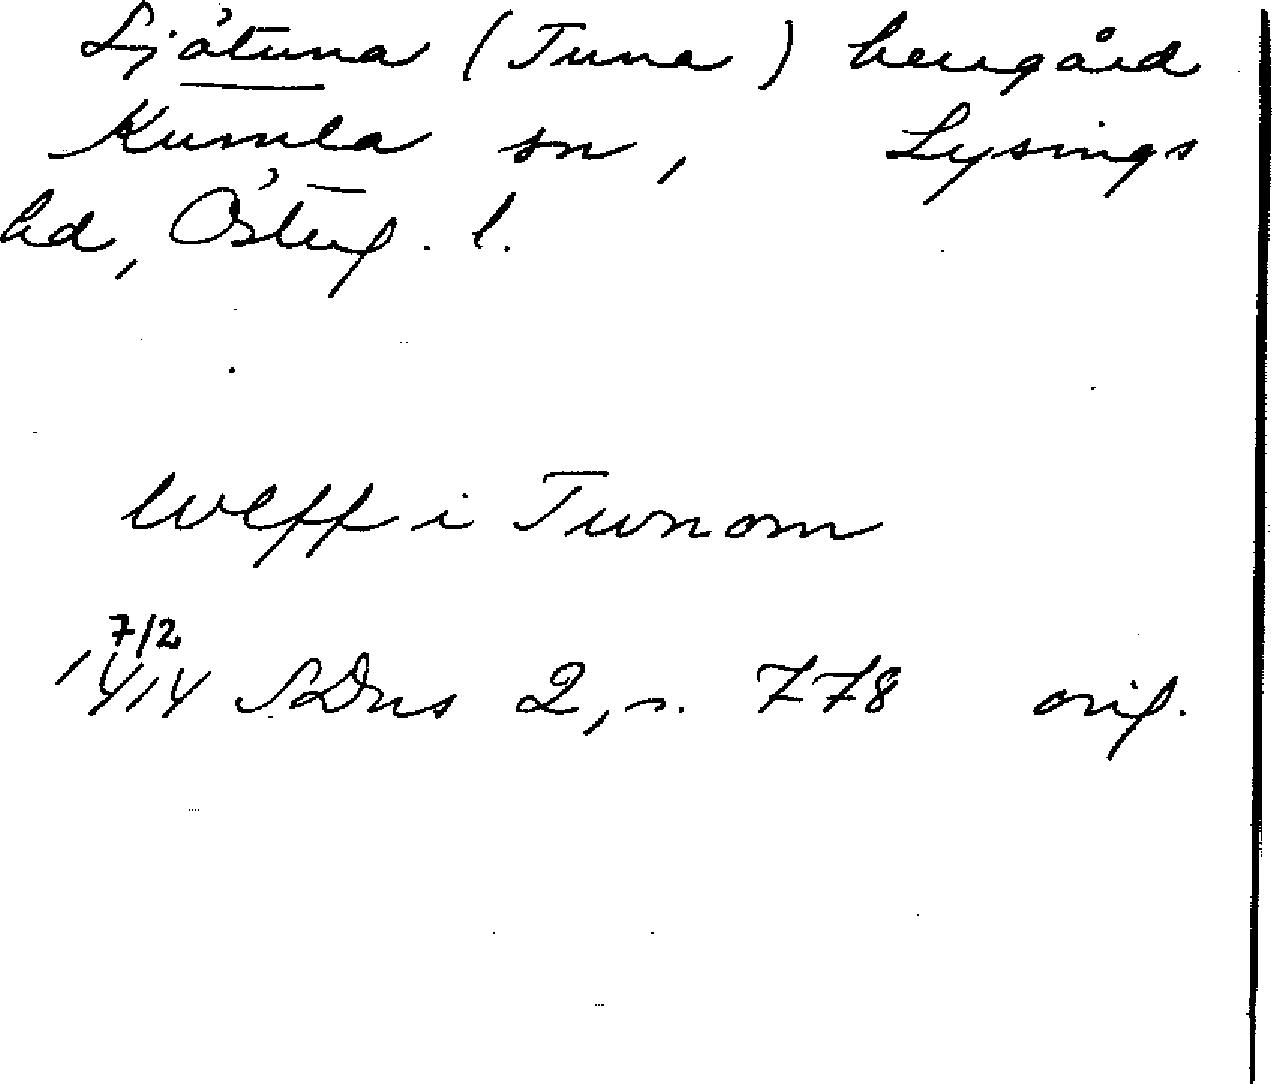 Sjötuna (Tuna) herrgård
Kumla sn, Lysings
hd, Österg. l.
wlff i Twnom
7/2
1414 SDns 2, s. 778 orig.